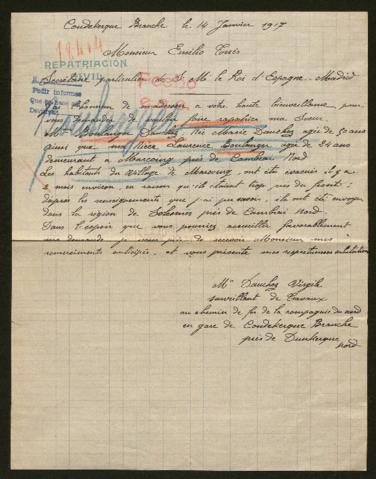 Coudekerque Branche le 14 Janvier 1917
Monsieur Emilio Torrès
REPATRIACIÓN
CIVIL
Secrétaire particulier de S. M. le Roi d'Espagne. Madrid
Pedir informes
J'ai l'honneur de a votre haute bienveillance, pour
vous demander de vouloir faire rapatrier ma Soeur.
Mme Boulanger Dauchez, Née Marie Dauchez agée de 50 ans
ainsi que ma Nièce Laurence Boulanger agée de 24 ans
demeurant a Marcoing près de Cambrai Nord
Les habitants du village de Marcoing, ont été évacués il y a
2 mois environ, en raison qu'ils étaient trop près du front:
d'après les renseignements que j'ai pu avoir, ils ont été envoyer
dans la région de Solesmes près de Cambrai Nord.
Dans l'espoir que vous pourriez accueillir favorablement
ma demande je vous prie de recevoir Monsieur mes
remerciments anticipés, et vous présente mes respectueuses salutations
Mr Dauchez Virgile
surveillant de travaux
au chemin de fer de la compagnie du nord
en gare de Coudekerque Branche
près de Dunkerque
Nord